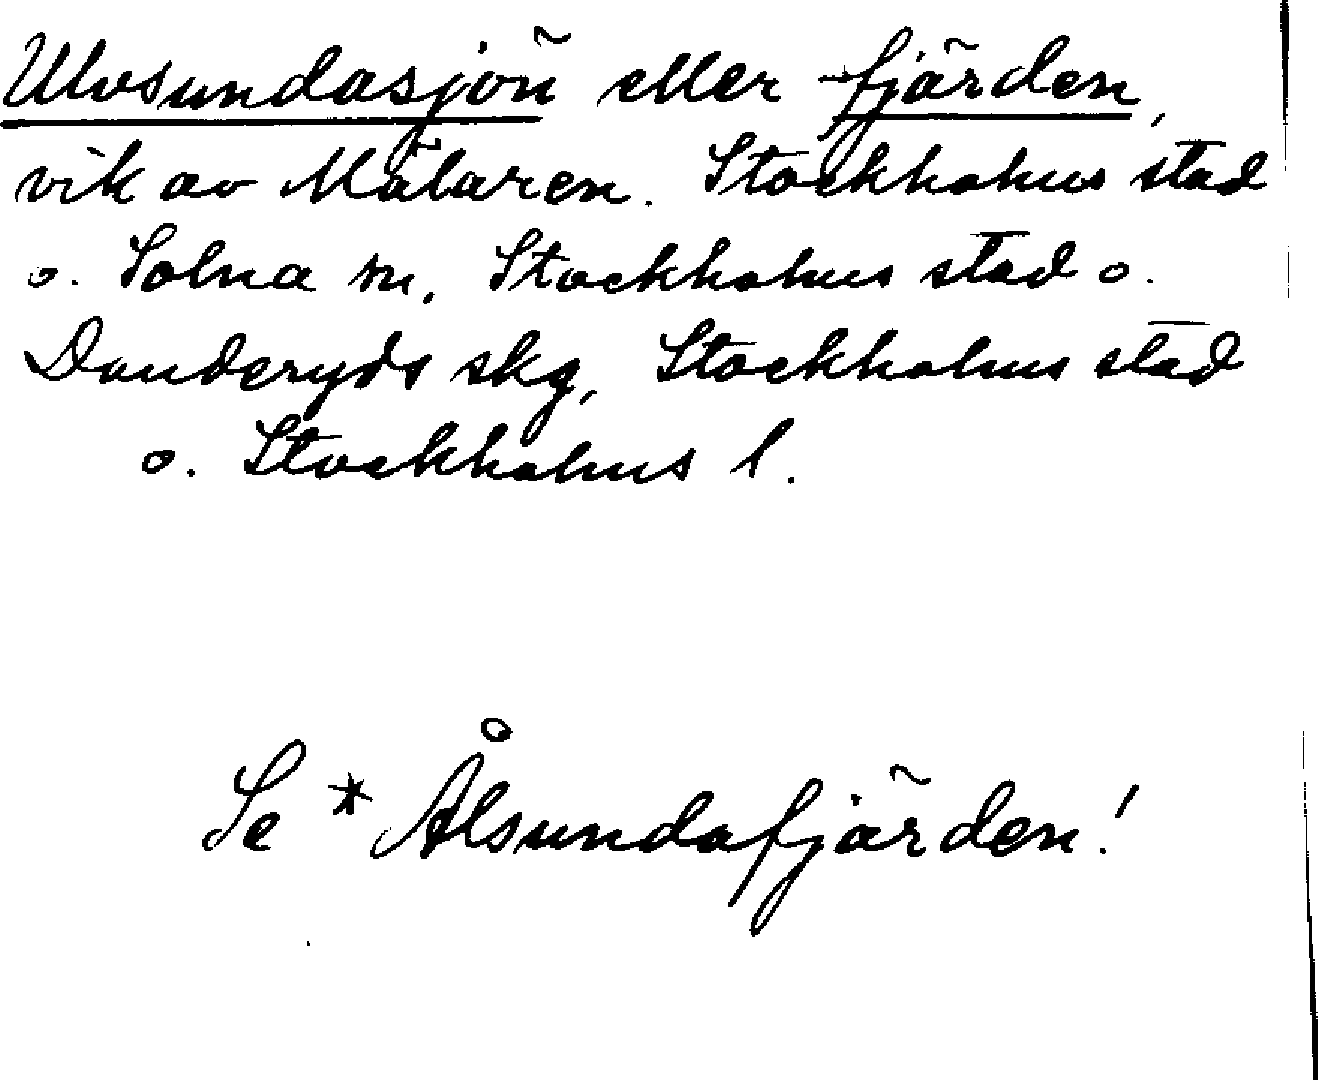 Ulvsundasjön eller -fjärden,
vik av Mälaren. Stockholms stad
o. Solna sn, Stockholms stad o.
Danderyds skg, Stockholms stad
o. Stockholms l.
Se * Ålsundafjärden!